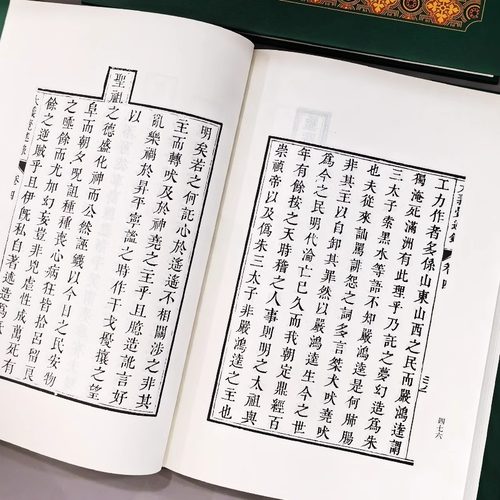 大義覺迷錄 卷四
四七六
工力作者多係山東山西之民而嚴鴻逵謂
獨淹死滿洲有此理乎乃託之夢幻造為朱
三太子索黑水等語不知嚴鴻逵是何肺腸
也夫從來訕罵誹怨之詞多言桀犬吠堯吠
非其主以自卸其罪然以嚴鴻逵生今之世
為今之民明代淪亡已久而我朝定鼎經百
年有餘按之天時稽之人事則明之太祖與
崇禎帝以及偽朱三太子非嚴鴻逵之主也
明矣若之何託心於遙遙不相關涉之非其
主而轉吠及於神堯之主乎且捏造訛言好
亂樂禍於昇平寧謐之時作干戈擾攘之望
聖祖之德盛化神而公然誣衊以今日之民安物
阜而朝夕呪詛種種喪心病狂皆拾呂留良
之唾餘而尤加幻妄豈非兇虐性成萬死有
餘之逆賊乎且伊既私自著述造為
大義覺迷錄 卷四